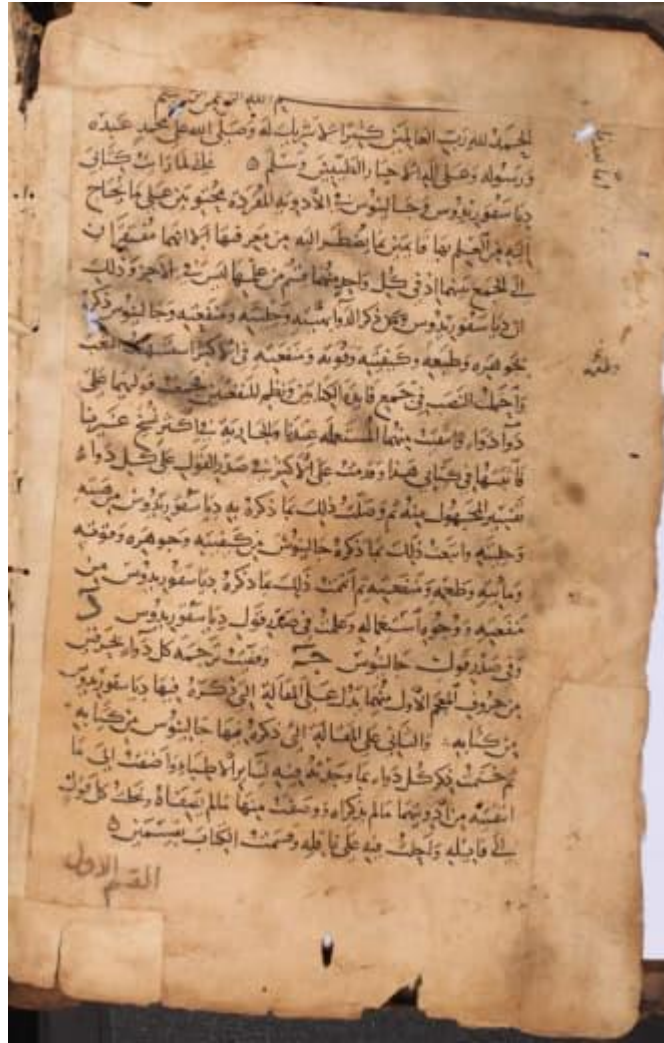 بسم الله الرحمن الرحيم
الحمد لله رب العالمين كثيرا لا شريك له وصلى الله على محمد عبده
ورسوله وعلى اله الاخيار الطيبين وسلم ه فلما رات كتابى
دياسقوريدوس وجالينوس فى الادويه المفرده محتويين على ما يحتاج
اليه من العلم بها قامين بما يضطر اليه من معرفتها الا انهما مفتقران
الى الجمع بينهما اذ فى كل واحد منهما قسم من علمها ليس فى الاخر وذلك
ان دياسقوريدوس ذكر الدوا بهيئته وحليته ومنفعته وجالينوس ذكره
بجوهره وطبعه وكيفيته وقوته ومنفعته فى الاكثر استسهلت التعب
النصب فى جميع فايده الكتابين ونظم المفعتين بجمع قوليهما على
دوا دوا والفت منهما المستعمله عندنا والجاريه فى اكثر نسخ غيرنا
فاثبتها فى كتابى هذا وقدمت على الاكثر فى صدر القول على كل دوا
تفسير المجهول منه ثم وصلت ذلك بما ذكره به دياسقوريدوس من هيئته
وحليته واتبعت ذلك بما ذكره جالينوس من كيفيته وجوهره وقوته
ومنفعته ثم اتممت ذلك بما ذكره دياسقوريدوس من
منفعته ووجوه استعماله وعلمت فى صدر قول دياسقوريدوس د
وفى صدر قول جالينوس ج ترجمه كل دواء بحرفين
من حروف المعجم الاول منهما يدل على المقالة التى ذكره فيها دياسقوريدوس
من كتابه والثانى على المقالة التى ذكره فيها جالينوس من كتابه
ثم ختمت ذكر كل دواء بما وجدته فيه لساير الاطباء واضفت الى ما
من ادويتهما مالم يذكراه ووصفت منها مالم يصفاه كل قول
الى قايله فيه على ناقله وقسمت الكتاب قسمين ه
القسم الاول